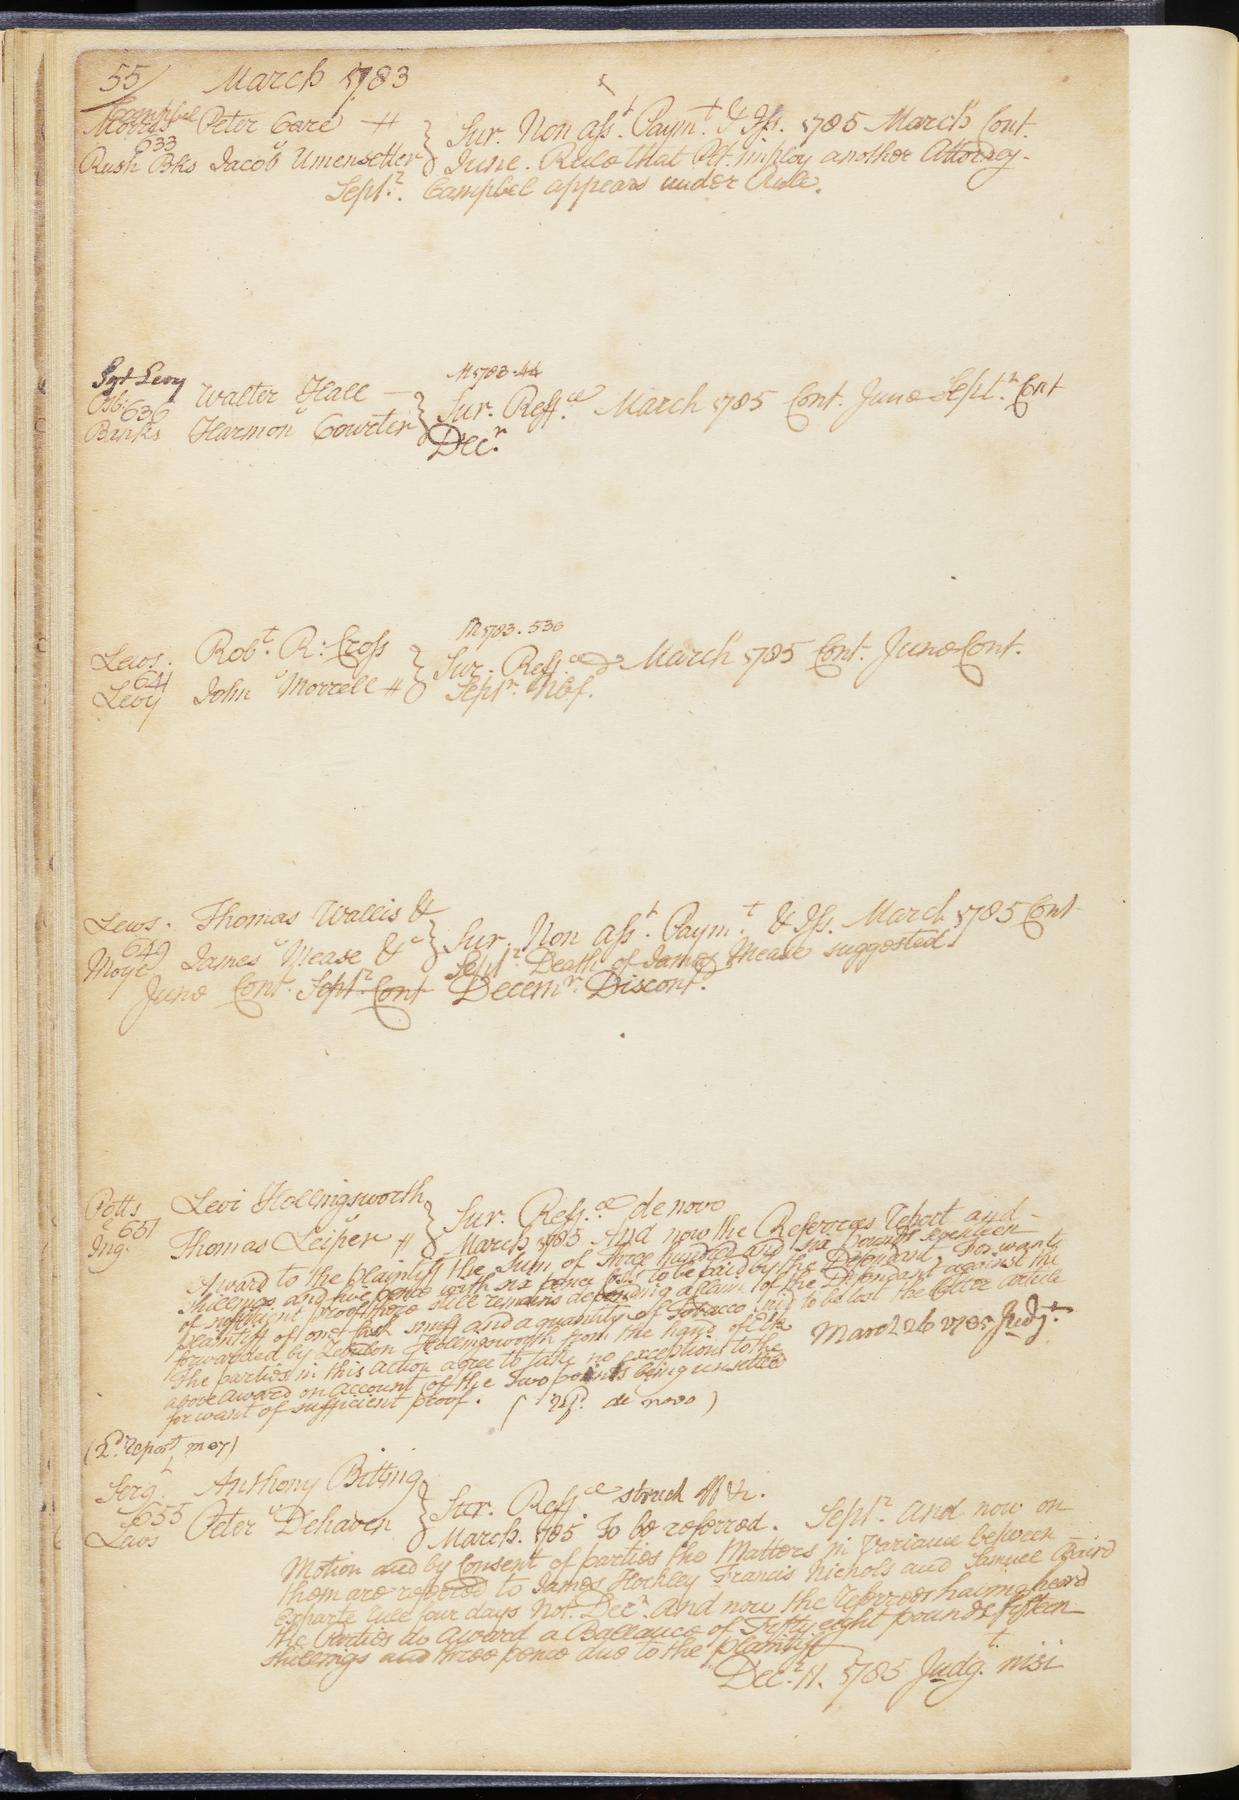 55/ March 1783
Campbel
Morris Peter Care #
633 v
Rush Bks Jacob Umensetter } Sur. Non asst. Paymt. & Iss. 1785 March Cont.
June. Rule that Plt. imploy another Attorney.
Septr. Campbel appears under Rule.
Sgt Levy Walter Hall — M 1783-44
636 v
Banks Harmon Courter } Sur. Reffce March 1785 Cont. June Septr. Cont
Decr.
Lews. Robt. R: Cross M 1783. 530
641 v
Levy John Morrell # } Sur. Reffce March 1785 Cont. June Cont.
Septr. Nbf.
Lews. Thomas Wallis &
649 v
James Mease &c } Sur. Non asst. Paymt. & Iss. March 1785 Cont
Septr. Death of James Mease suggested
June Cont. Septr. Cont Decemr. Discont.
Potts Levi Hollingsworth
651 v
Ing. Thomas Leiper # } Sur. Reffce de novo
March 1785 And now the Referees Report and
Award to the plaintiff the Sum of three hundred and six pounds seventeen
shillings and five pence with six pence Cost to be paid by the Defendant, For want
of sufficient proof there still remains depending a claim of the Defendant against the
plaintiff of one snuff and a quantity of Tobacco said to be lost the latter article
forwarded by Zebulon Hollingsworth from the head of Elk
The parties in this action agree to take no exceptions to the
above award on account of the two points being unsettled
for want of sufficient proof. ( de novo )
March 26 1785 Judgt.
(2d. report m 87)
Serg. Anthony Bitting
655 v
Laws Peter Dehaven } Sur. Reffce struck off &c.
March. 1785 To be referred. Septr. And now on
Motion and by Consent of parties the Matters in Variance between
them are referred to James Hockley Francis Nichols and Samuel Baird
Exparte rule four days Not. Decr. And now the Referrees having heard
the Parties do award a Ballance of Fifty eight pounds fifteen
shillings and three pence due to the plaintiff
Decr. 11. 1785 Judgt. nisi